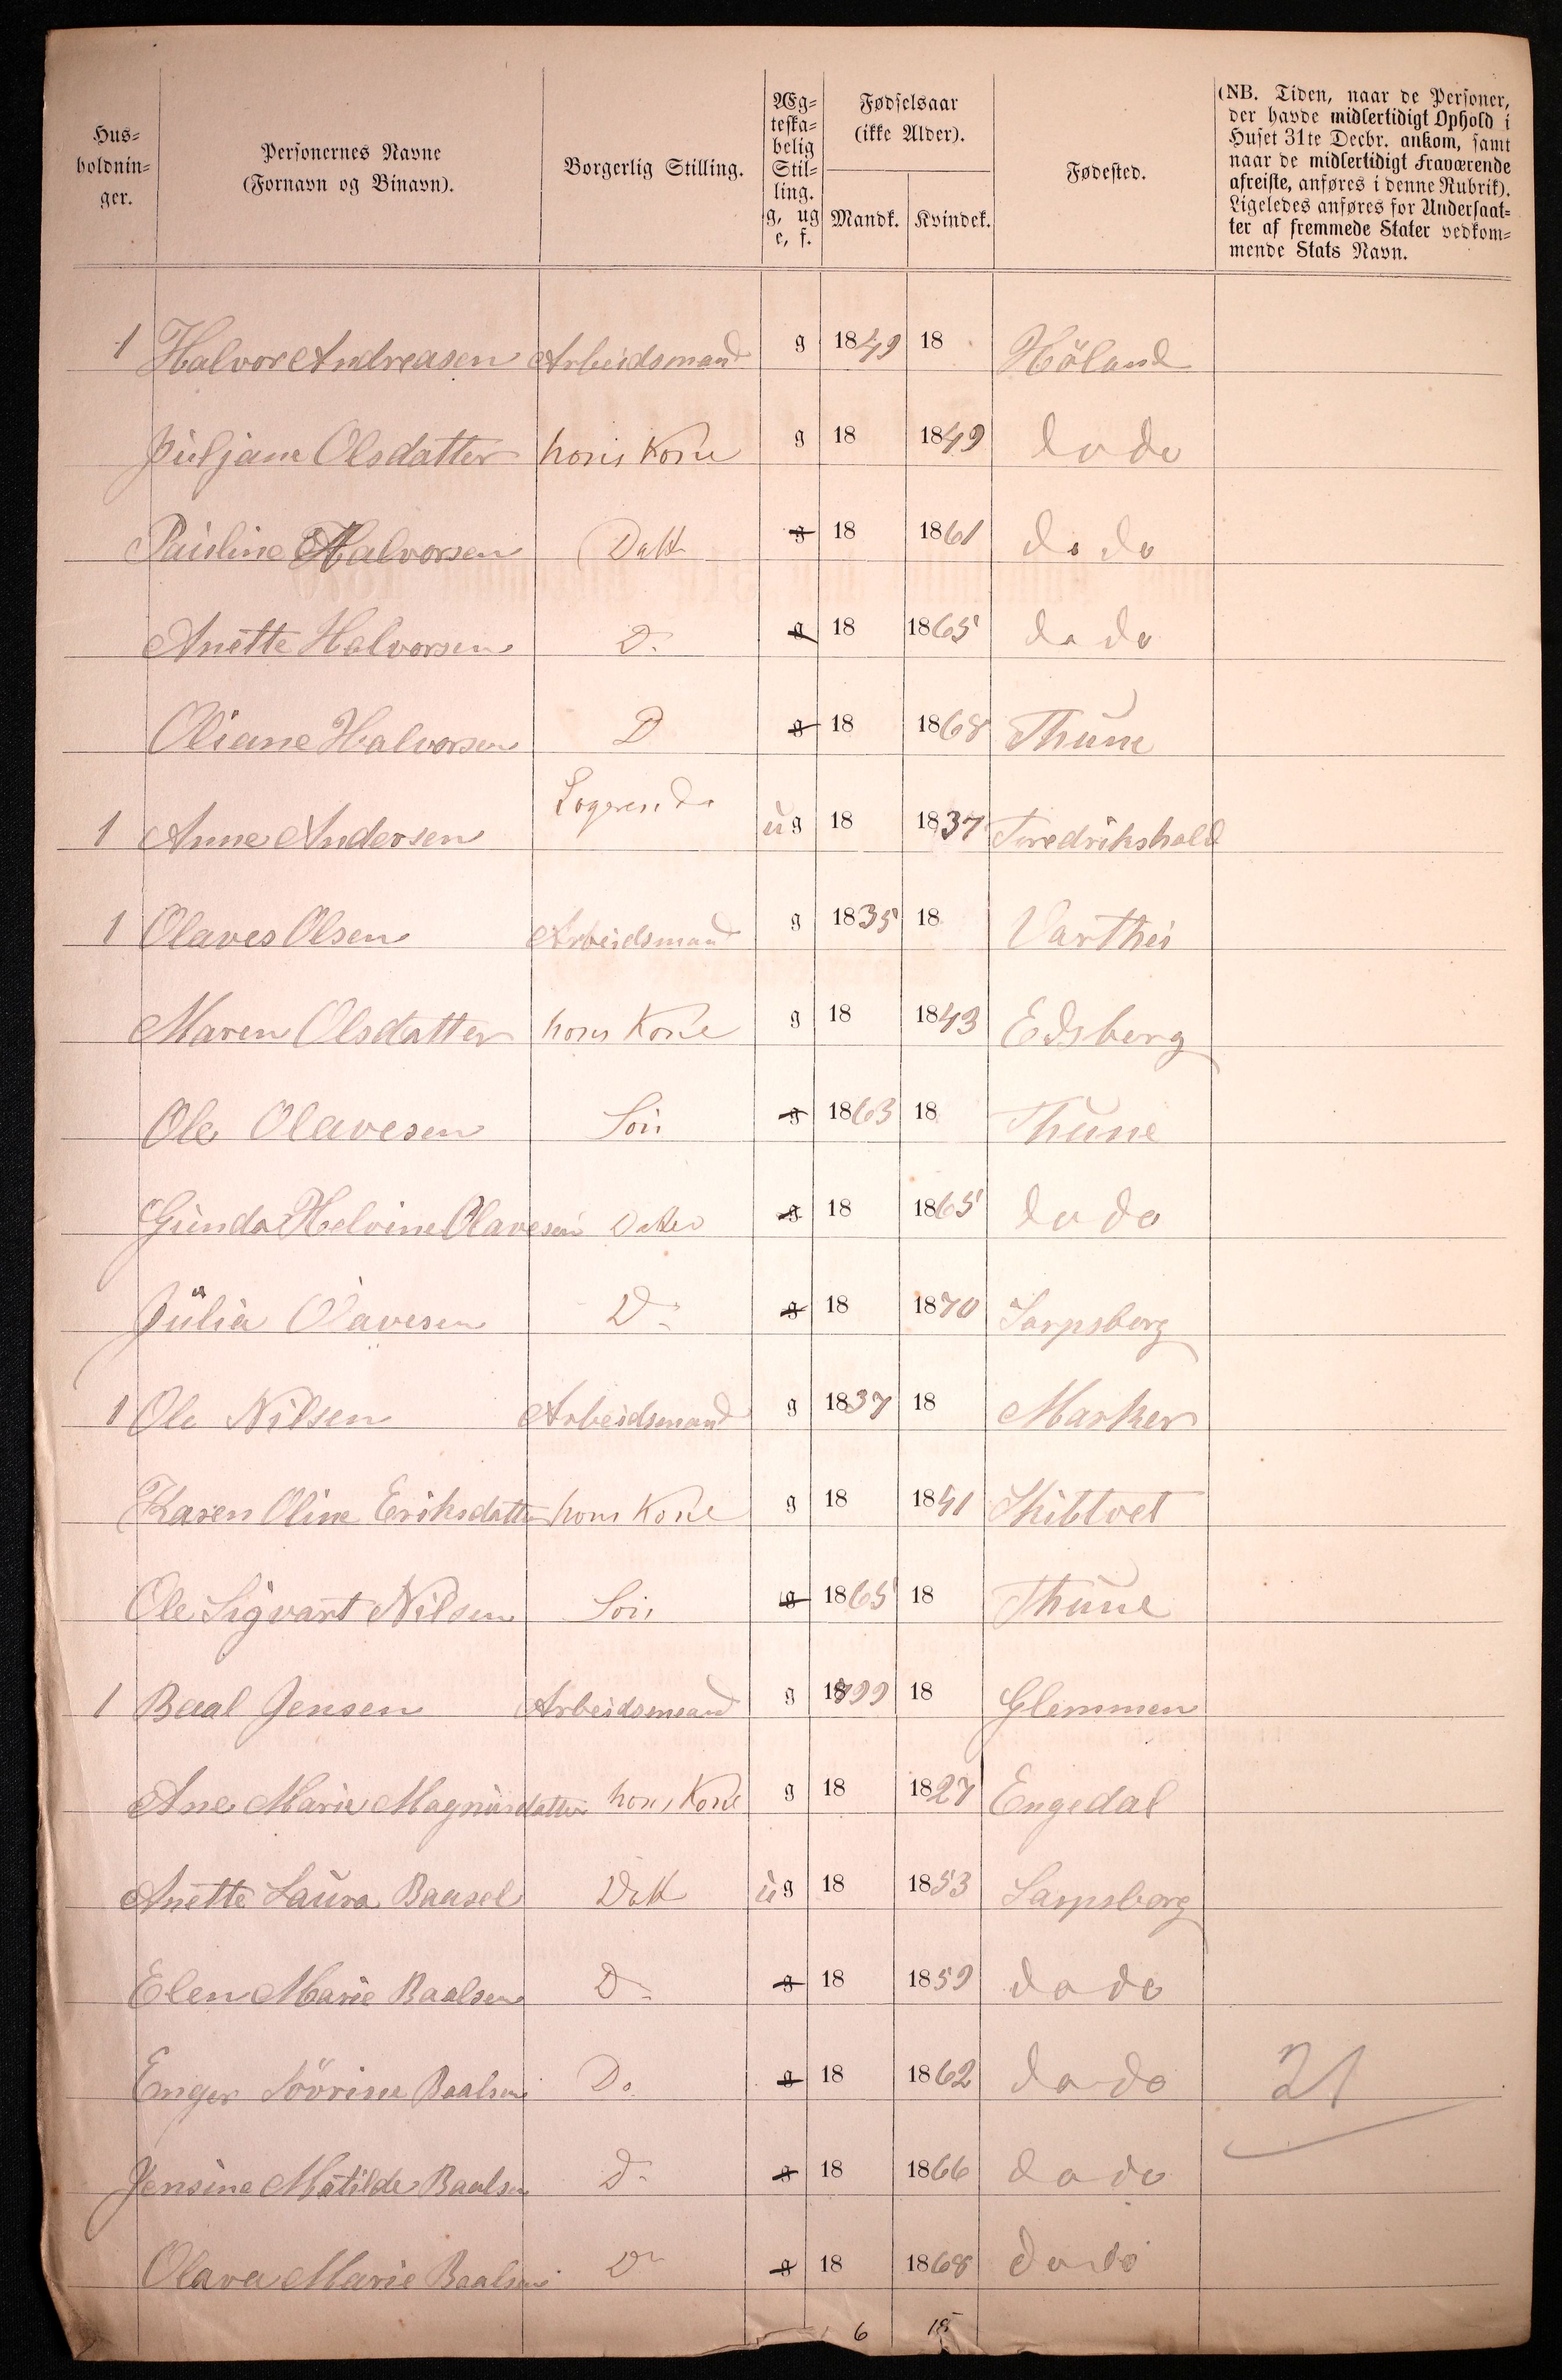 Hus-
holdnin-
ger.
Personernes Navne
(Fornavn og Binavn).
Borgerlig Stilling.
Æg-
teska-
belig
Stil-
ling.
g, ug
e, f.
Fødselsaar
(ikke Alder).
Mandk. Kvindek.
Fødested.
(NB. Tiden, naar de Personer,
der havde midlertidigt Ophold i
Huset 31te Decbr. ankom, samt
naar de midlertidigt Fraværende
afreiste, anføres i denne Rubrik).
Ligeledes anføres for Undersaat-
ter af fremmede Stater vedkom-
mende Stats Navn.
1 Halvor Andreasen Arbeidsmand g 1849 18 Höland
Juljane Olsdatter hans Kone g 18 1849 do do
Pauline Halvorsen Datt g 18 1861 do do
Anette Halvorsen Do g 18 1865 do do
Oliane Halvorsen D g 18 1868 Thune
1 Anne Andersen Logerende ug 18 1837 Fredrikshald
1 Olaves Olsen Arbeidsmand g 1835 18 Varthei
Maren Olsdatter hans Kone g 18 1843 Edsberg
Ole Olavesen Sön g 1863 18 Thune
Gunda Helvine Olavesen Datter g 18 1865 do do
Julia Olavesen Do g 18 1870 Sarpsborg
1 Ole Nilsen Arbeidsmand g 1837 18 Marker
Karen Oline Eriksdatter hans Kone g 18 1841 Skibtvet
Ole Sigvart Nilsen Sön g 1865 18 Thune
1 Baal Jensen Arbeidsmand g 1799 18 Glemmen
Ane Marie Magnusdatter hans Kone g 18 1827 Engedal
Anette Laura Baasel Datt ug 18 1853 Sarpsborg
Elen Marie Baalsen Do g 18 1859 do do
Enger Sövrine Baalsen Do g 18 1862 do do 21
Jensine Matilde Baalsen Do g 18 1866 do do
Olava Marie Baalsen Do g 18 1868 do do
6 15